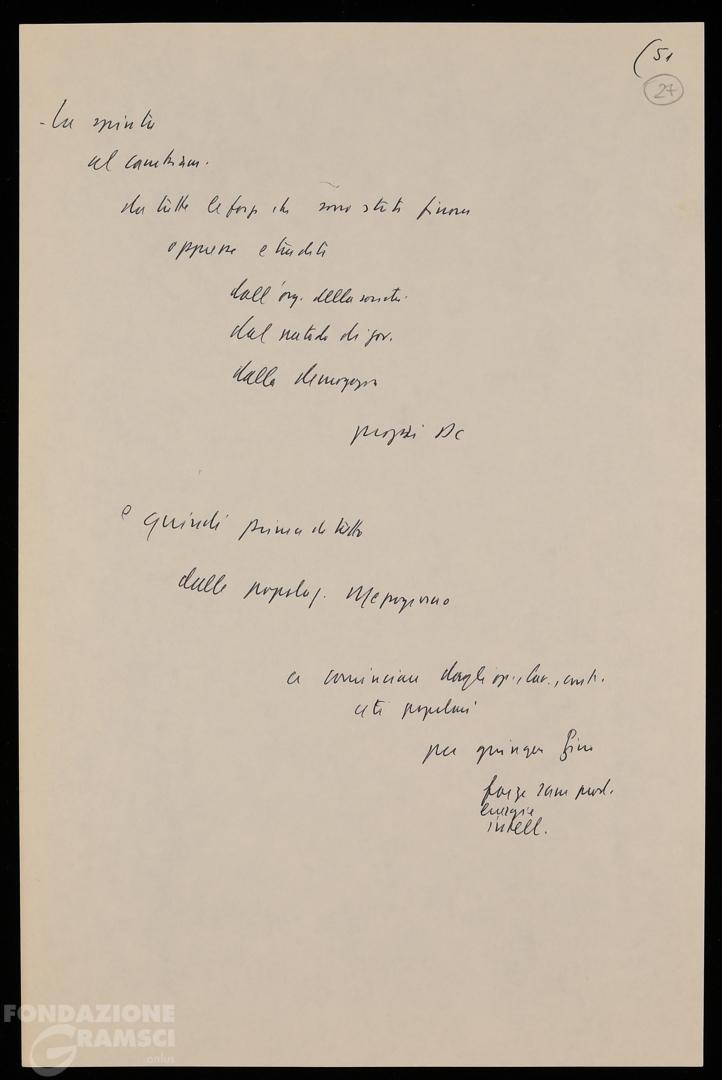 (51
27
- La spinta
al cambiam.
da tutte le forze che sono state finora
oppresse e tradite
dall'org. della società
dal metodo di gov.
dalla demagogia
propri DC
e quindi prima di tutto
dalle popolaz. Mezzogiorno
a cominciare dagli op., lav., cont.
ceti popolari
per giungere fino
forze sane prod.
energie
intell.
FONDAZIONE
GRAMSCI
onlus